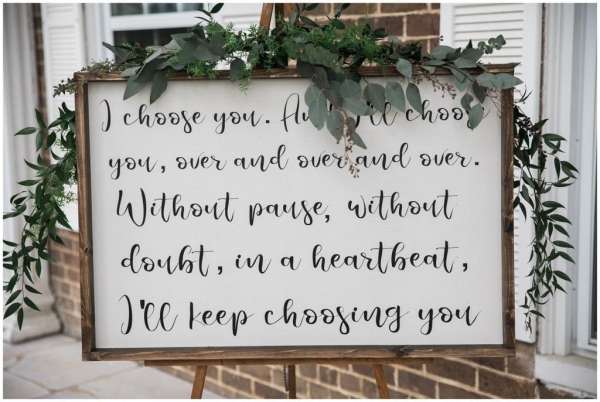 I choose you. And I'll choose
you, over and over and over.
Without pause, without
doubt, in a heartbeat,
I'll keep choosing you